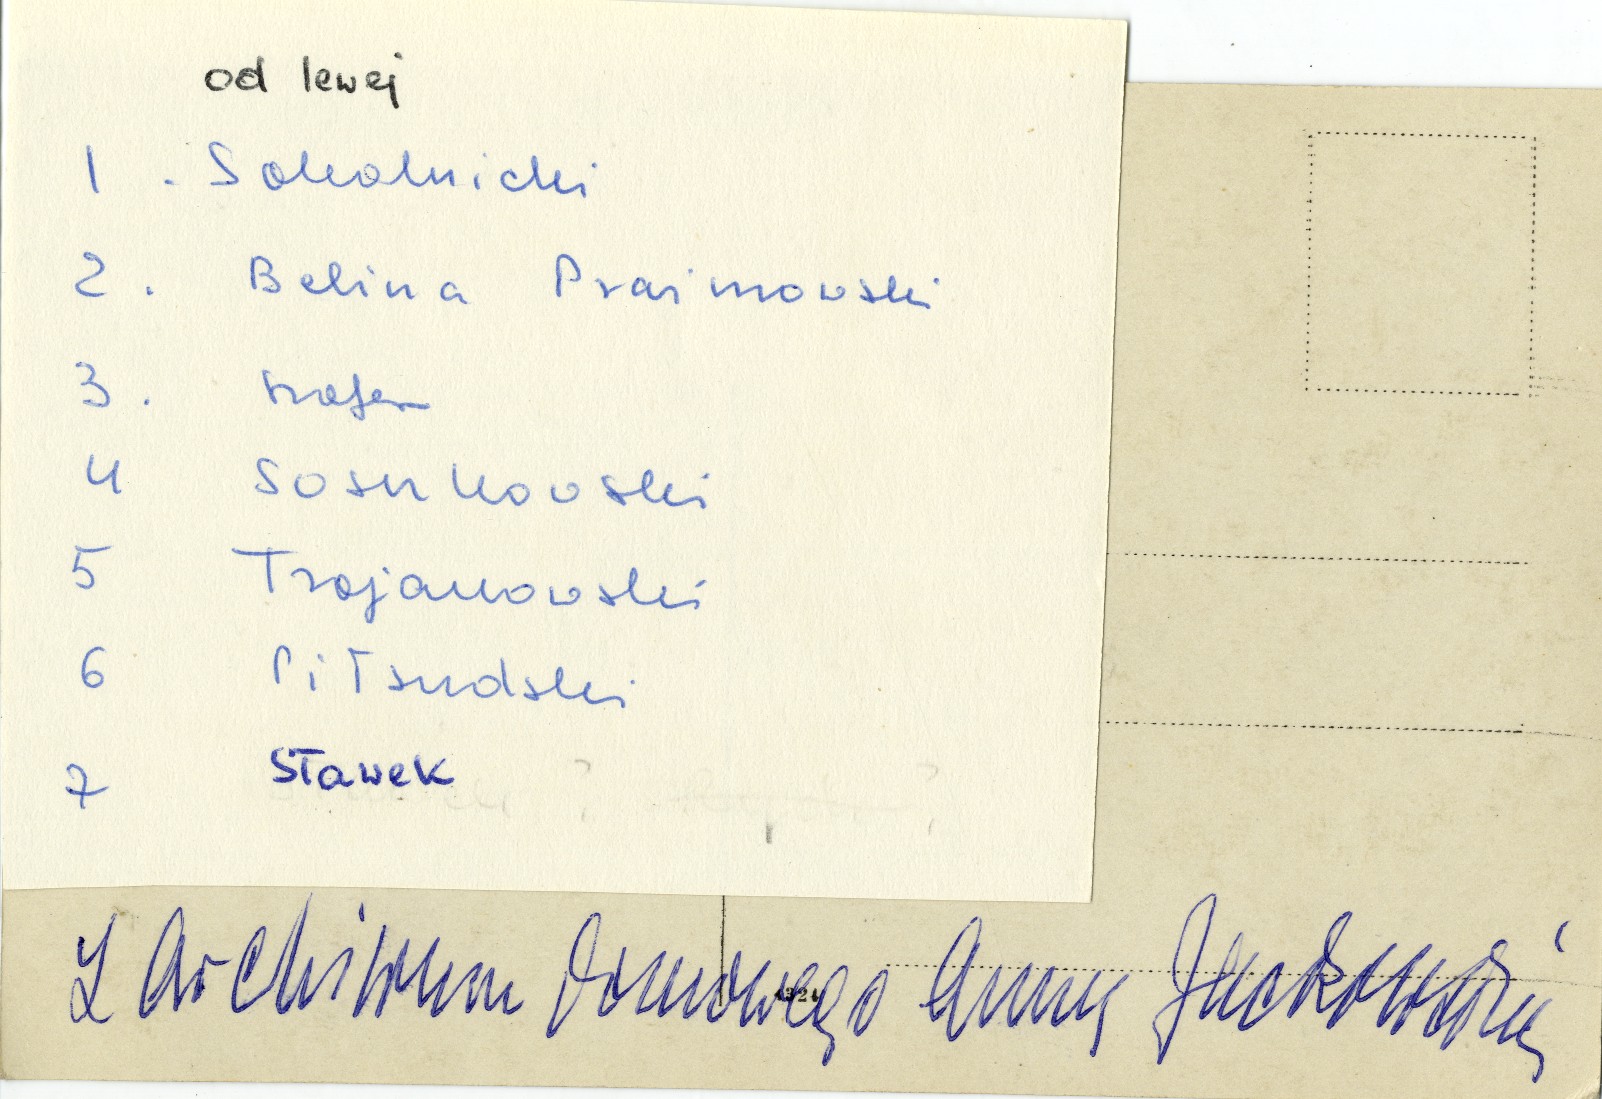 od lewej
1 . Sokolnicki
2 . Belina Prażmowski
3 . szofer
4 Sosnkowski
5 Trojanowski
6 Piłsudski
7 Sławek
Z Archiwum Domowego Anny